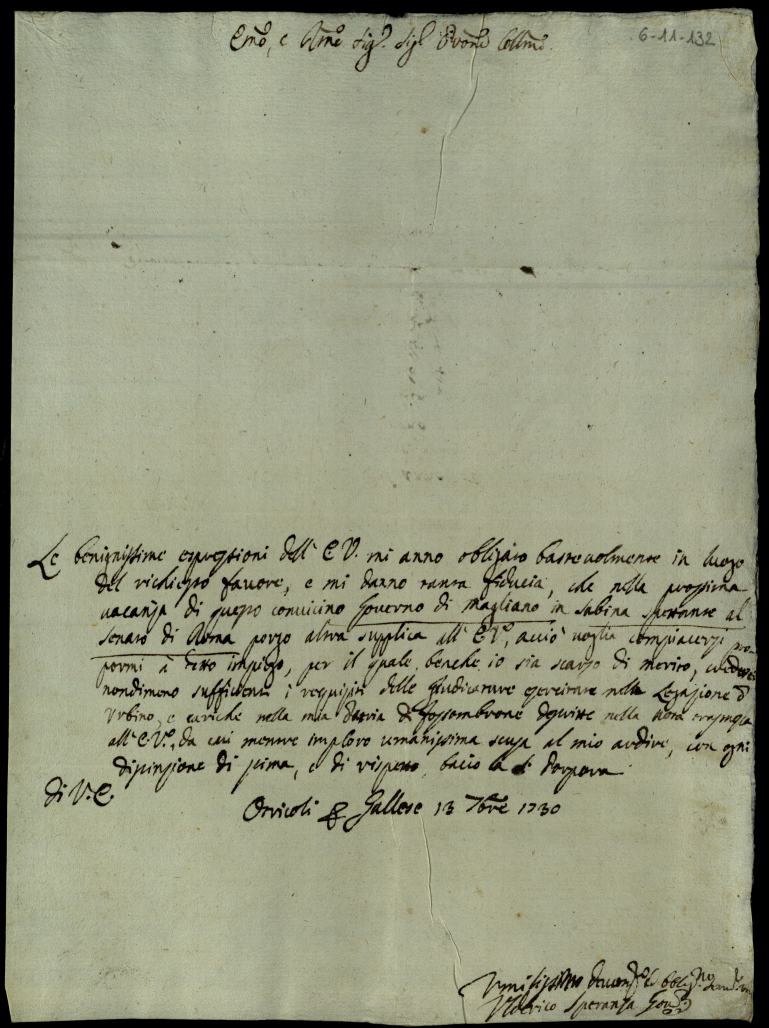 Emo, e Rmo Sigr. Sigr Prone Collmo
6-11-132
Le benignissime espressioni dell' E V. mi anno obligato bastevolmente in luogo
del richiesto favore, e mi danno tanta fiducia, che nella prossima
vacanza di questo convicino Governo di Magliano in Sabina spettante al
Senato di Roma porgo altra supplica all' E.V., acciò voglia compiacersi pro-
pormi à detto impiego, per il quale, benche io sia scarso di merito,
nondimeno sufficienti i requisiti delle Giudicature esercitate nella Legazione d'
Urbino, e cariche nella mia Patria di Fossombrone descritte nella nota trasmessa
all' E.V., da cui mentre imploro umanissima scusa al mio ardire, con ogni
distinzione di stima, e di rispetto, bacio la S. Porpora
Di V. E.
Otricoli Gallese 13 7bre 1730
Umilissimo
Speranza